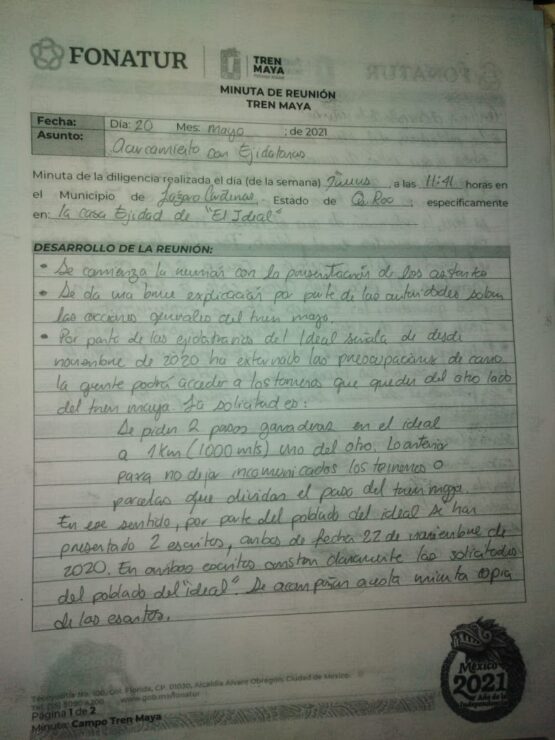 FONATUR
TREN
MAYA
MINUTA DE REUNIÓN
TREN MAYA
Fecha: Día: 20 Mes: mayo ; de 2021
Asunto: Acercamiento con Ejidatarios
Minuta de la diligencia realizada el día (de la semana) Jueves, a las 11:41 horas en
el Municipio de Lázaro Cárdenas Estado de Q. Roo ; específicamente
en: la casa Ejidal de "El Ideal"
DESARROLLO DE LA REUNIÓN:
• Se comienza la reunión con la presentación de los asistentes
• Se da una breve explicación por parte de las autoridades sobre
las acciones generales del tren maya.
• Por parte de los ejidatarios del Ideal señala de desde
noviembre de 2020 ha externado las preocupaciones de como
la gente podrá acceder a los terrenos que queden del otro lado
del tren maya. La solicitud es:
Se piden 2 pasos ganaderos en el ideal
a 1Km (1000 mts) uno del otro. Lo anterior
para no dejar incomunicados los terrenos o
parcelas que dividan el paso del tren maya.
En ese sentido, por parte del poblado del ideal se han
presentado 2 escritos, ambos de fecha 22 de noviembre de
2020. En ambos escritos constan claramente las solicitudes
del poblado del "ideal". Se acompañan a esta minuta copia
de los escritos.
Tecoyotitla No. 100, Col. Florida, CP. 01030, Alcaldía Álvaro Obregón, Ciudad de México.
Tel: (55) 5090 4200 www.gob.mx/fonatur
Página 1 de 2
Minuta: Campo Tren Maya
México
2021
Año de la
Independencia